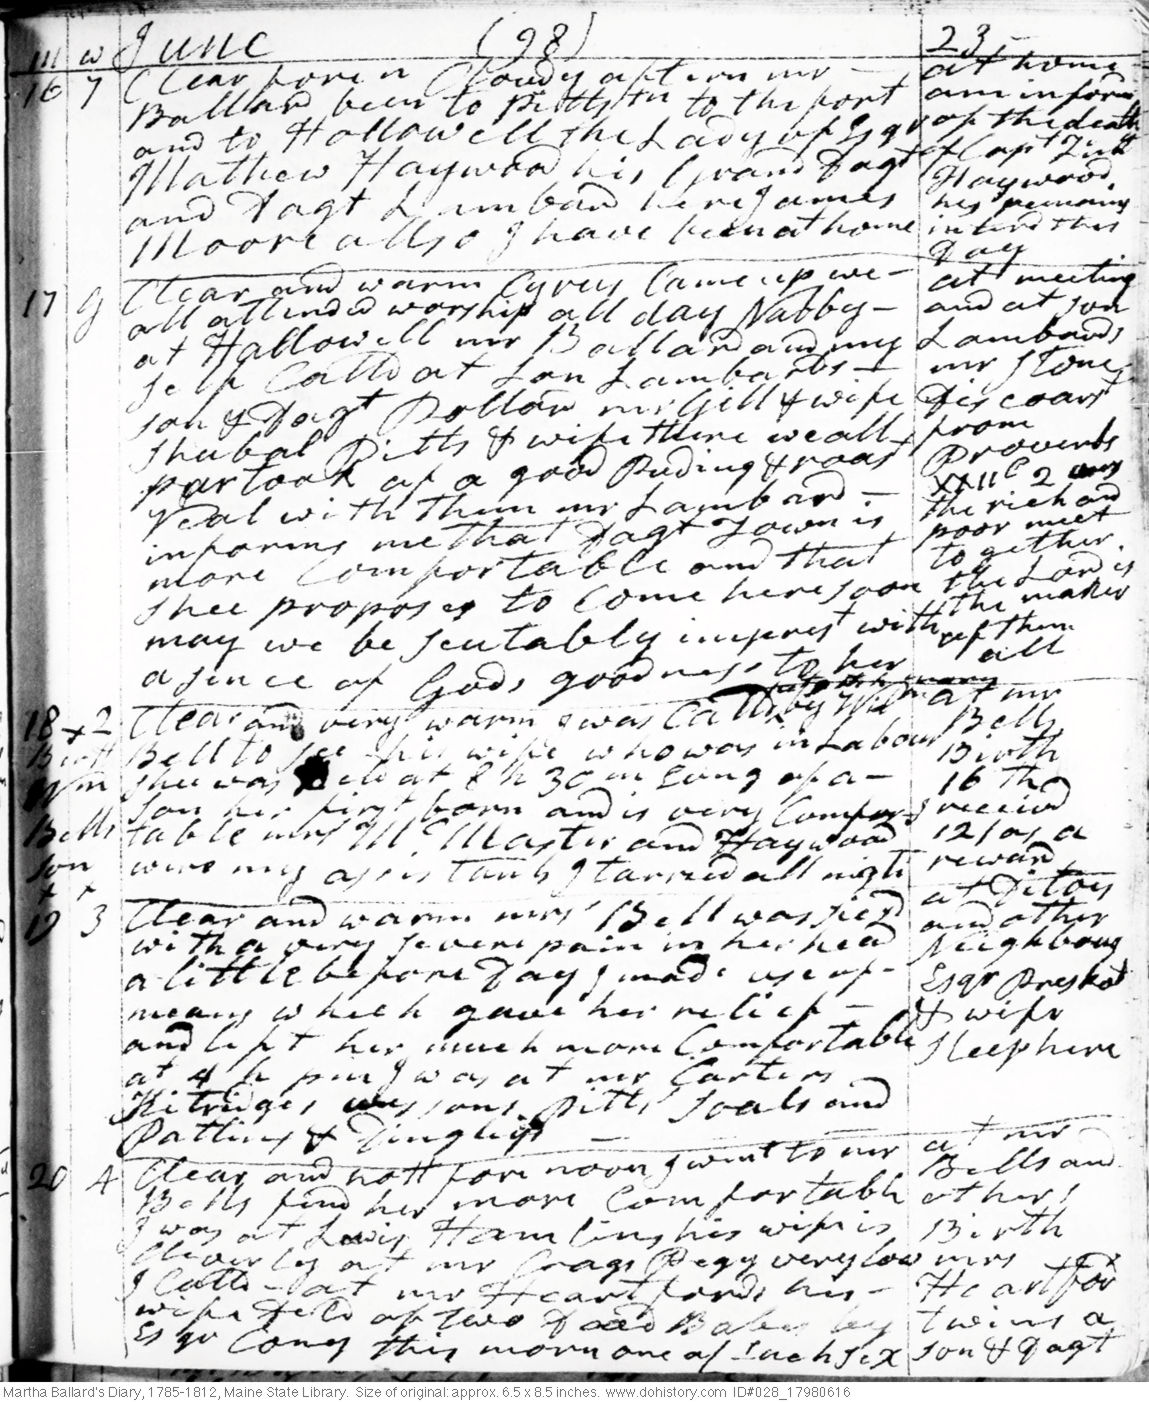 m w June (98) 23
16 7 Clear foren Cloudy aftern mr
Ballard been to Pittstn to the fort
and to Hallowell the Lady of Esqr
Mathew Haywood his Grand Dagt
and Dagt Lambard here James
Moore allso I have been at home
at home
am inform
of the death
of Capt Zim
Haywood
his remains
interd this
Day
17 g Clear and warm Cyrus Came up we
all attended worship all day Nabby
at Hallowell mr Ballard and my
self Calld at son Lambards
son & Dagt Pollard mr Gill & wife
Shubal Pitts & wife there we all
partook of a good Puding & roast
Veal with them mr Lambard
informs me that Dagt Town is
more Comfortable and that
shee proposes to Come here soon
may we be seutably imprest with
a sence of Gods goodness to her
at meeting
and at son
Lambards
mr Stone
Discoars
from
Proverbs
XXII C 2 vers
the rich and
poor meet
to gether.
the Lord is
the maker
of them
all
18 x 2 Clear and very warm I was Calld by Wm
Bell to see his wife who was in Labour
shee was at 8 h 30 m Evng of a
son her first born and is very Comfor
table mrs McMaster and Haywood
were my assistants I tarried all night
Birth
Wm
Bells
son
x x
at mr
Bells
Birth
16th
receivd
12/ as a
reward
19 3 Clear and warm mrs Bell was siesd
with a very severe pain in her head
a little before Day I made use of
means which gave her relief
and left her much more Comfortable
at 4 h pm I was at mr Carters
Kitridges Pitts Soals and
Patting & Dinglys
at Ditos
and other
Neighbours
Esqr Preskot
& wife
sleep here
20 4 Clear and hott fore noon I went to mr
Bells find her more Comfortabl
I was at Lewis Hamlins his wife is
Cleverly at mr Crags Pegy very low
I Calld at mr Heartfords his
wife deld of two Dead Babes by
Esqr Cony this morn one of Each sex
at mr
Bells and
others
Birth
mrs
Heartford
twins a
son & Dagt
Martha Ballard's Diary, 1785-1812, Maine State Library. Size of original: approx. 6.5 x 8.5 inches. www.dohistory.com ID#028_17980616